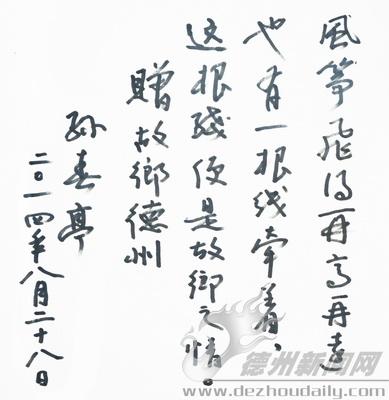 風筝飛得再高再遠
也有一根线牵着、
这根线便是故鄉之情。
贈故鄉德州
孙春亭
二〇一四年八月二十八日
德州新闻网
www.dezhoudaily.com